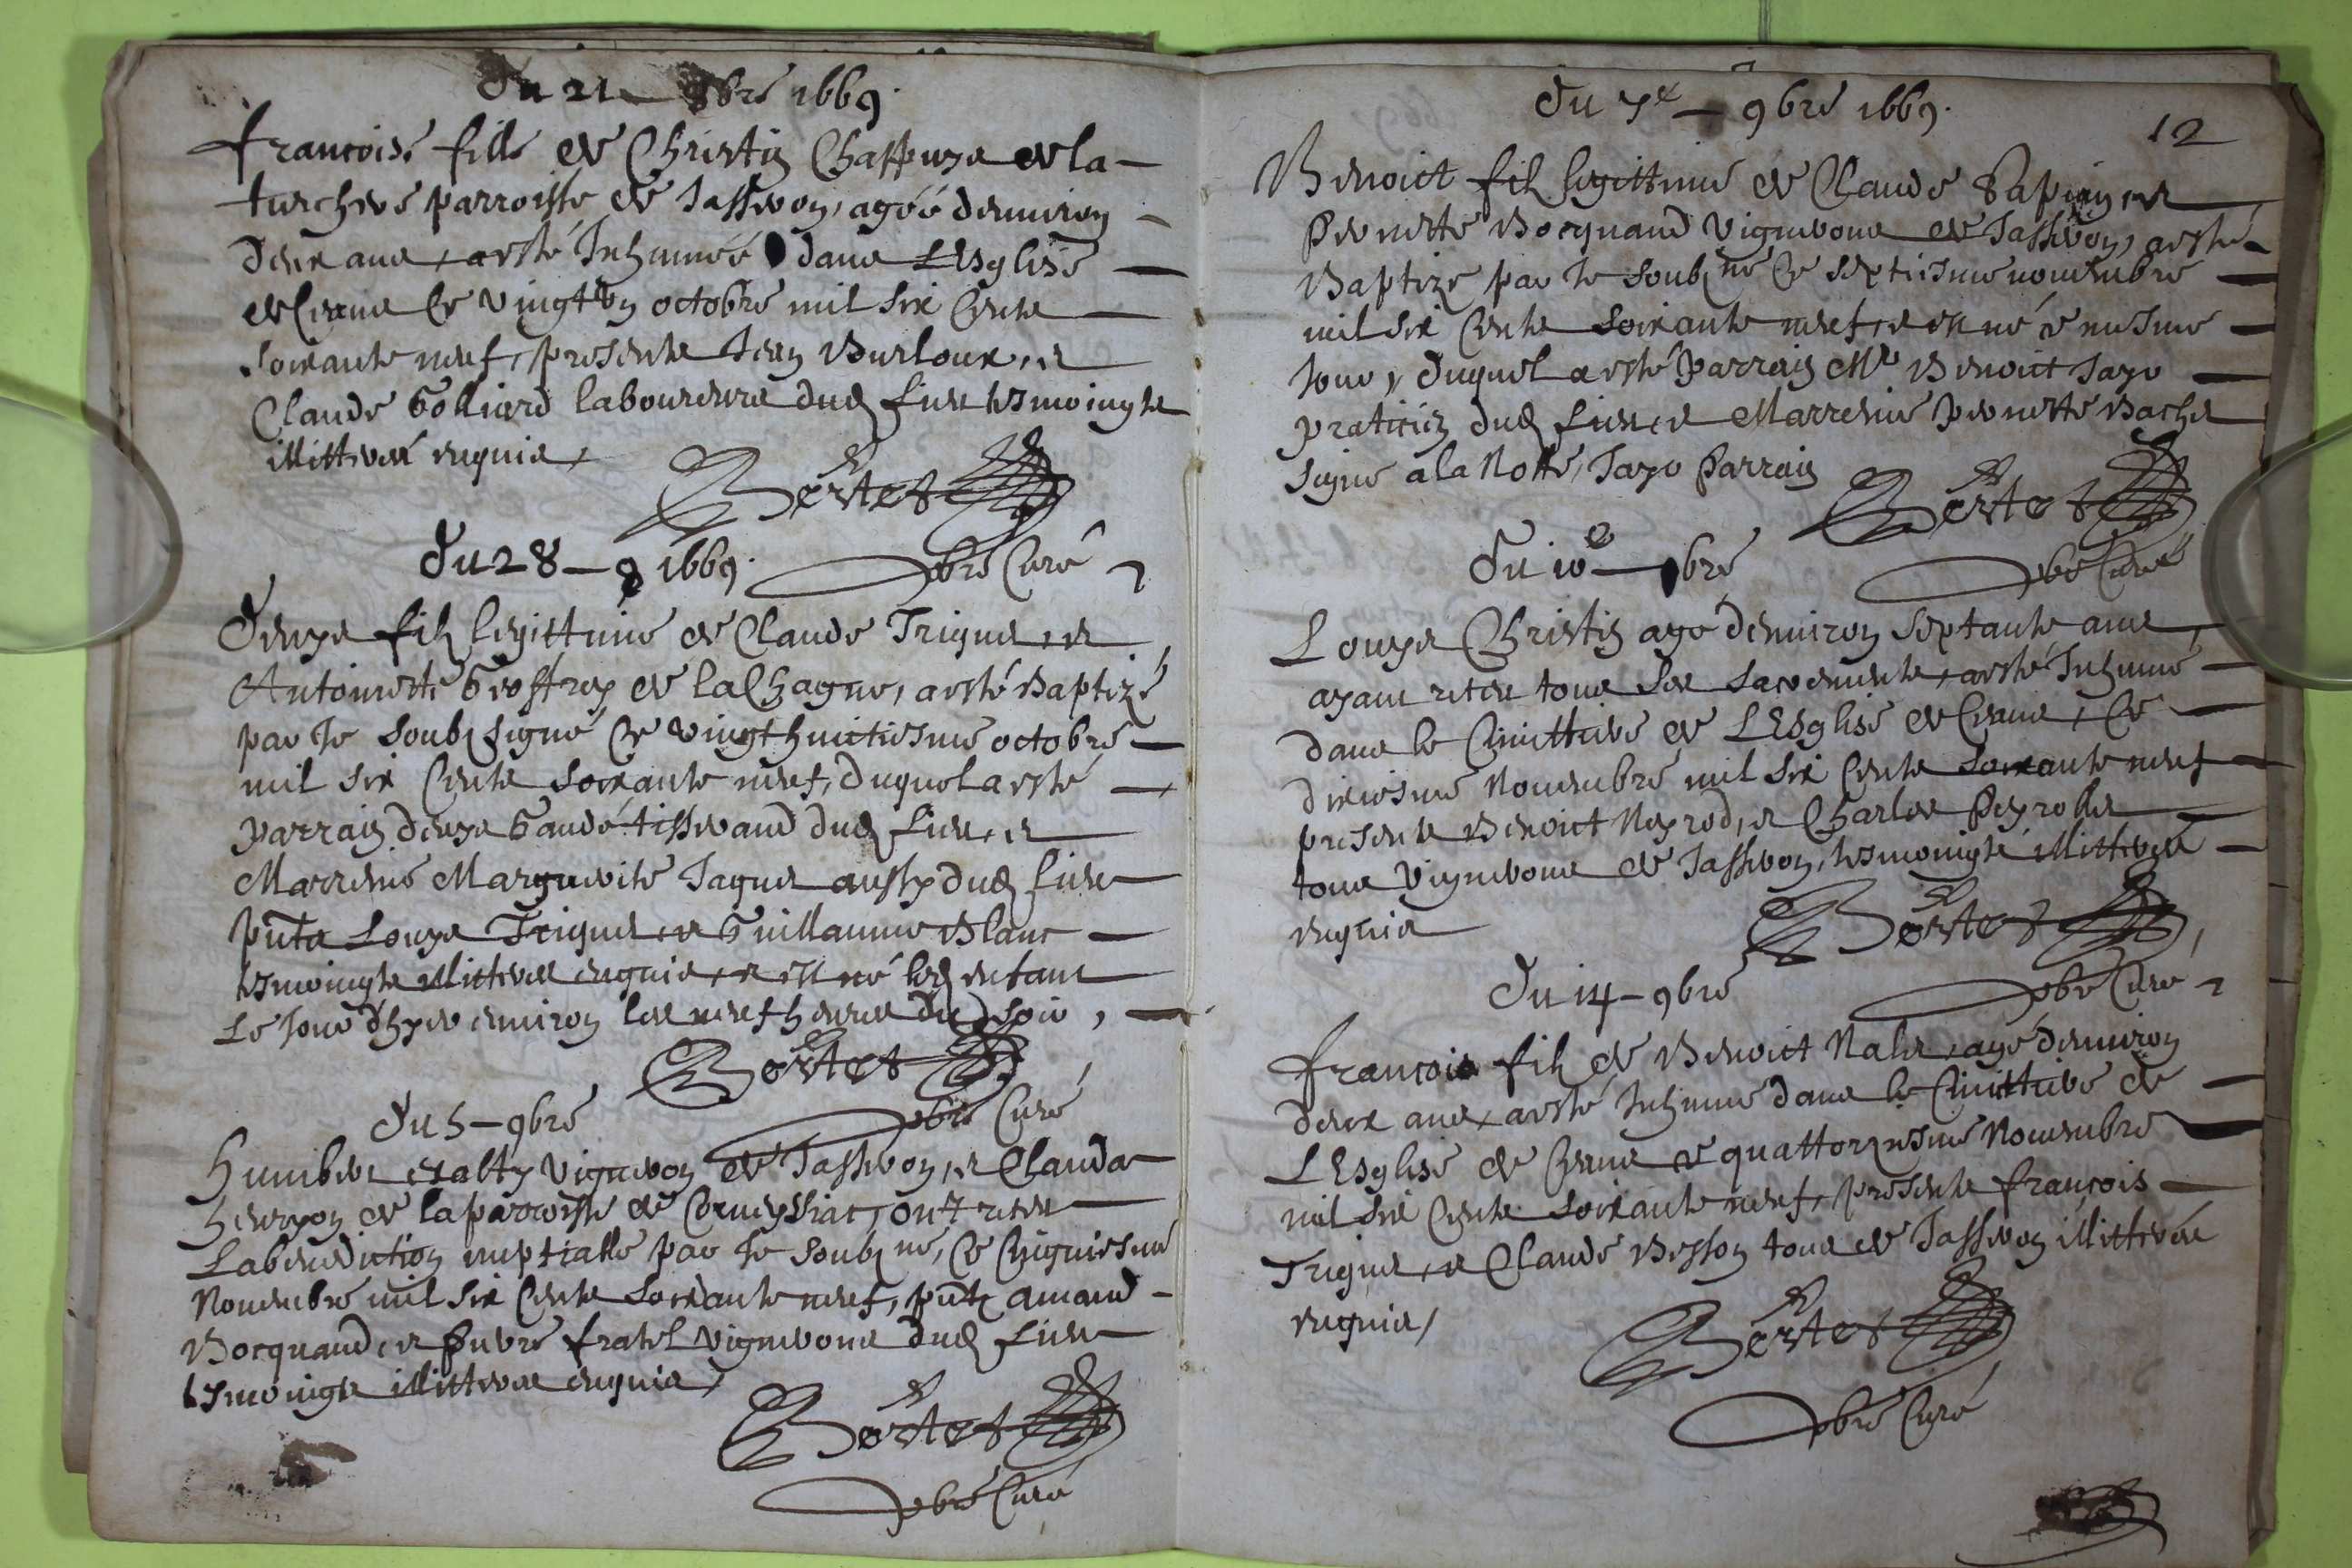 Du 21 — 8bre 1669.
francoise fille de Christin Chaffuys de la —
turchere parroisse de Jasseron, agéé denuiron —
deux ans, a esté Inhuméé dans LEsglise —
de Ceans ce vingt vn octobre mil six Cents —
soixante neuf, presents Jean Burloux, et
Claude Golliard laboureurs dud lieu tesmoingts
illitterés enquis,
Bertet
pbre Curé
Du 28 — 8 1669.
Denys filz legittime de Claude Triquet, et
Antoinette Geoffrey de la Chagne, a esté Baptizé
par Je soubsigné ce vingt huictiesme octobre —
mil six Cents soixante neuf, duquel a esté —
parrain denys Gaudé tisserand dud lieu, et
Marreine Marguerite Jaquet aussy dud lieu
pnts Louys Triquet et Guillaume Blanc —
tesmoingts illitterés enquis, et est né led enfant
Le Jour d'hyer enuiron les neuf heures du soir, —
Bertet
pbre Curé
Du 5 — 9bre
Humbert vigneron de Jasseron, et Clauda
henryon de la parroisse de Corueyssiac, ont receu
La benediction nuptialle par Je soubz né, ce Cinquiesme
Nouembre mil six Cents soixante neuf, pntz amand —
Bocquand, et pierre fratel vignerons dud lieu
tesmoingts illitterés enquis,
Bertet
pbre Curé
12
Du 7e — 9bre 1669.
Benoict filz legittime de Claude Sapin, et
Pernette Bocquand vignerons de Jasseron, a esté
Baptizé par Je soubz né ce septiesme nouembre —
mil six Cents soixante neuf, et est né ce mesme —
Jour, duquel a esté Parrain Me Benoict Jayr —
praticien dud lieu, et Marreine pernette Bachet
signé a la Notte, Jayr Parrain
Bertet
pbre Curé
Du 10e — 9bre
Louys Christin agé denuiron septante ans,
ayant receu tous ses sacrements, a esté Inhumé —
dans le Cimittiere de LEsglise de Ceans, ce —
dixiesme Nouembre mil six Cents soixante neuf —
presents Benoict Neyrod, et Charles Peyrollet
tous vignerons de Jasseron, tesmoingts illitterés
enquis
Bertet
pbre Curé
Du 14 — 9bre
francois filz de Benoict Nalet, agé denuiron
deux ans, a esté Inhumé dans le Cimittiere de —
LEsglise de Ceans ce quattorziesme Nouembre
mil six Cents soixante neuf, presents francois —
Triquet, et Claude Besson tous de Jasseron illitterés
enquis,
Bertet
pbre Curé